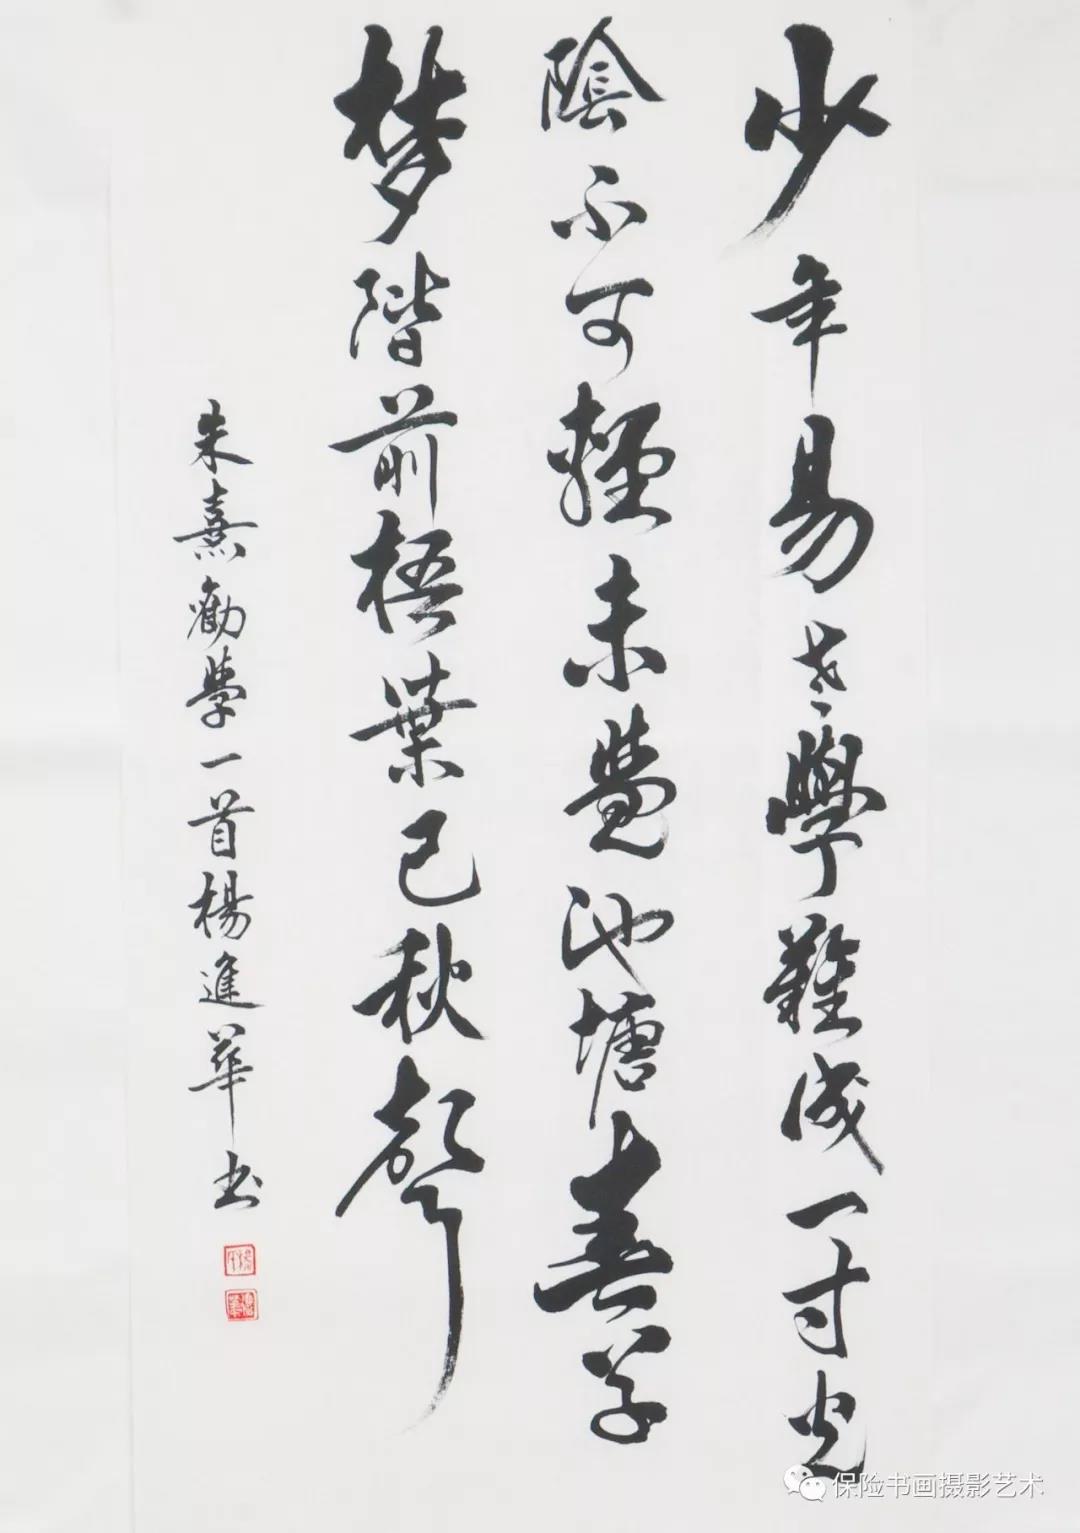 少年易老學難成一寸光
陰不可輕未覺池塘春草
梦階前梧葉已秋聲
朱熹勸學一首楊進華书
保险书画摄影艺术